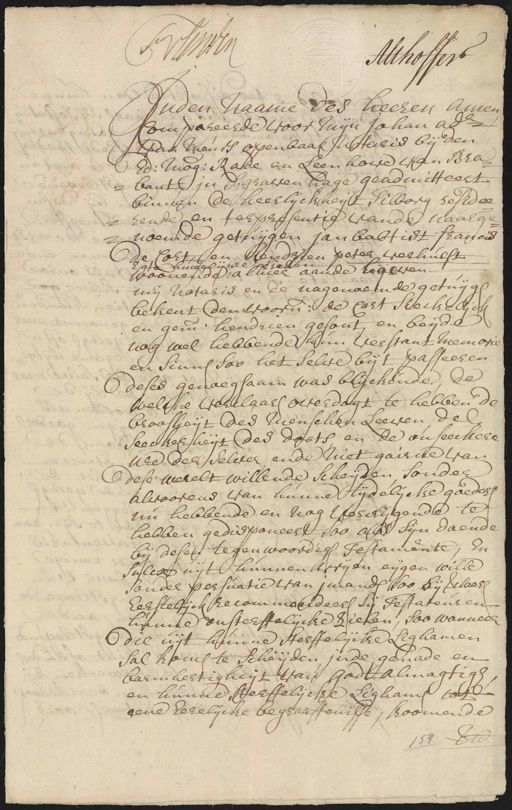 Althoffer
In den Naame des heeren Amen,
Compareerde voor mijn Johan ad:
van Ments openbaar Notaris bij den
Ed: Mog: Rade en Leenhove van Bra=
=bant in Sgravenhage geadmitteert
binnen de heerlijckheijt Tilborg reside=
=rende en ter presentie vande naarge=
=noemde getuijgen Jan babtist francis
de Cort, en Hendrien peter verhulst
woonende alhier aande heuvel
mij Notaris en de nagenoemde getuijge
bekent den voorn: de Cort sieckelijck
en gem: hendrien gesont, en beijde
nog wel hebbende hun verstant memorie
en sinne soo het selve bij 't passeeren
deses genoegsaam was blijckende, de
welcke verclaars overdagt te hebben de
broosheijt des Menschen Leeven, de
seeckerheijt des doots, en de onseckere
ure der selver ende niet gaerne van
dese werelt willende scheijden sonder
alvoorens van hunne tijdelijcke goederen
nu hebbende en nog vercrijgende te
hebben gedisponeert soo als sijn doende
bij desen tegenwoordig Testamente, en
sulcx uijt hunnen vrijen eijgen wille
sonder persuatie van jmands, soo sij
Eerstelijck recommandeeren sij Testateuren
hunne onsterffelijcke Zielen, soo wanneer
die uijt hunne sterffelijcke Lighamen
sal komen te scheijden, in de genade en
barmhertigheijt van Godt almagtigh,
en hunne sterffelijcke Lighams
eene Eerelijcke begraaffenisse, koomende
159